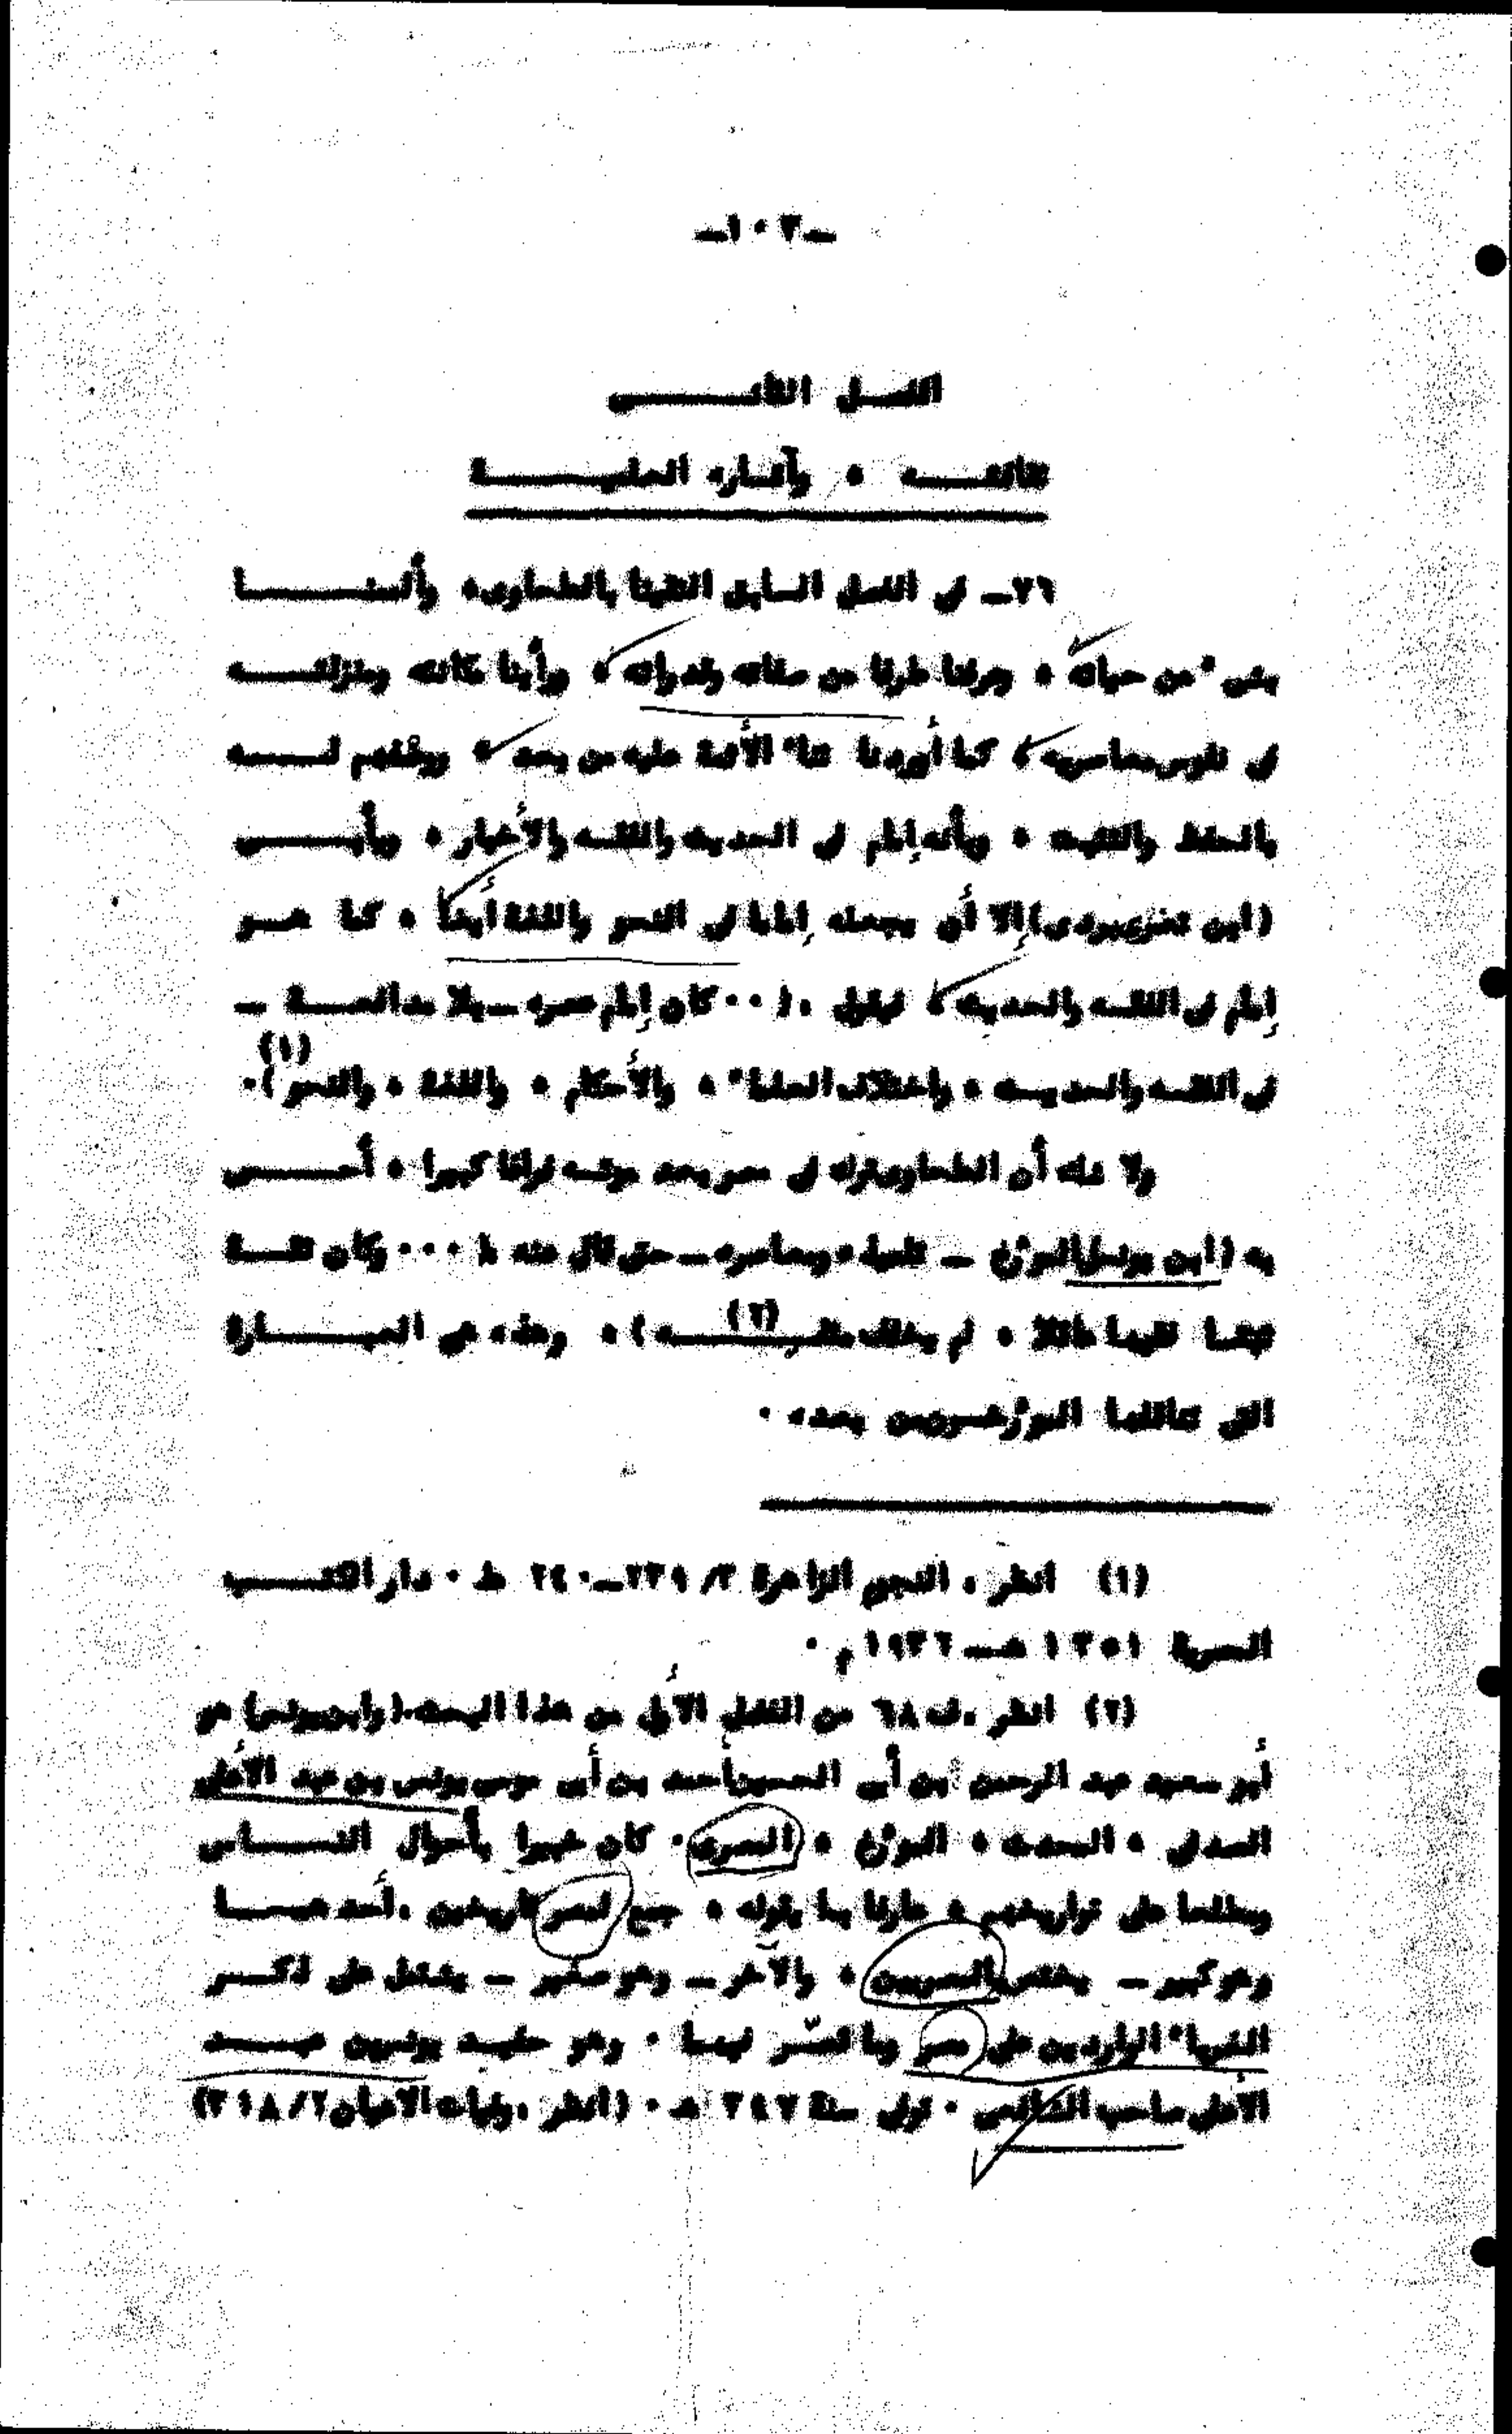 -١٠٣-
الفصل الثانى
ثقافته ، وآثاره العلمية
٧٦- فى الفصل السابق التقينا بالطحاوى، وألممنا
بشىء من حياته ، وعرفنا طرفا من صفاته وقدراته ، ورأينا مكانته ومنزلته
فى نفوس معاصريه ، كما أوردنا ثناء الأئمة عليه من بعد ، ووصفهم لـه
بالحفظ والتثبت ، وبأنه إمام فى الحديث والفقه والأخبار ، ويأبى
(ابن تغرى بردى) إلا أن يجعله إماما فى النحو واللغة أيضا ، كما هو
إمام فى الفقه والحديث ، فيقول : (٠٠ كان إمام عصره - بلا مدافعة -
فى الفقه والحديث ، واختلاف العلماء ، والأحكام ، واللغة ، والنحو )(١).
ولا شك أن الطحاوى ترك فى مصر بعد موته فراغا كبيرا ، أحس
به (ابن يونس) المؤرخ - تلميذه ومعاصره - حتى قال عنه : (٠٠٠ وكان ثقة
ثبتا فقيها عاقلا ، لم يخلف مثله )(٢) ، وهذه هى العبارة
التى تناقلها المؤرخون من بعده .
(١) انظر : النجوم الزاهرة ٣/ ٢٣٩-٢٤٠ ط . دار الكتب
المصرية ١٣٥١ هـ - ١٩٣٢ م .
(٢) انظر : ف ٦٨ من الفصل الأول من هذا البحث. (وابن يونس) هو
أبو سعيد عبد الرحمن بن أبى الحسن أحمد بن أبى موسى يونس بن عبد الأعلى
الصدفى ، المحدث ، المؤرخ ، المصرى . كان خبيرا بأحوال الناس
ومطلعا على تواريخهم ، عارفا بما يقوله ، جمع لمصر تاريخين : أحدهما
وهو كبير - يختص بالمصريين ، والآخر - وهو صغير - يشتمل على ذكر
الغرباء الواردين على مصر وما قصّر فيهما . وهو حفيد يونس بن عبد
الأعلى صاحب الشافعى . توفى سنة ٣٤٧ هـ . (انظر : وفيات الاعيان ٢/ ٣١٨)